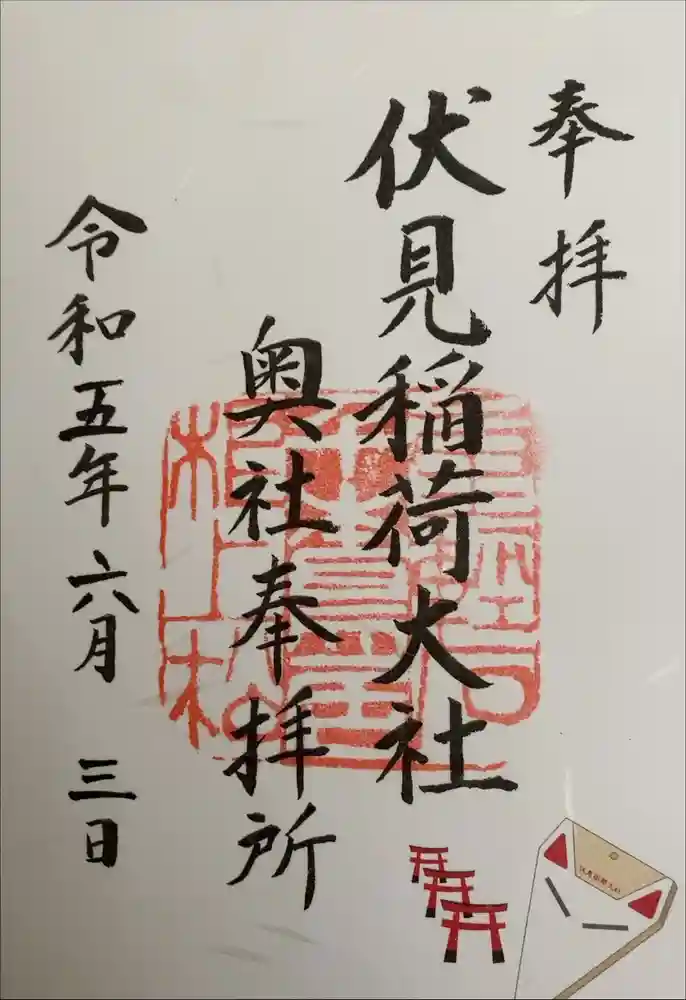 奉拝
伏見稲荷大社
奥社奉拝所
令和五年六月三日